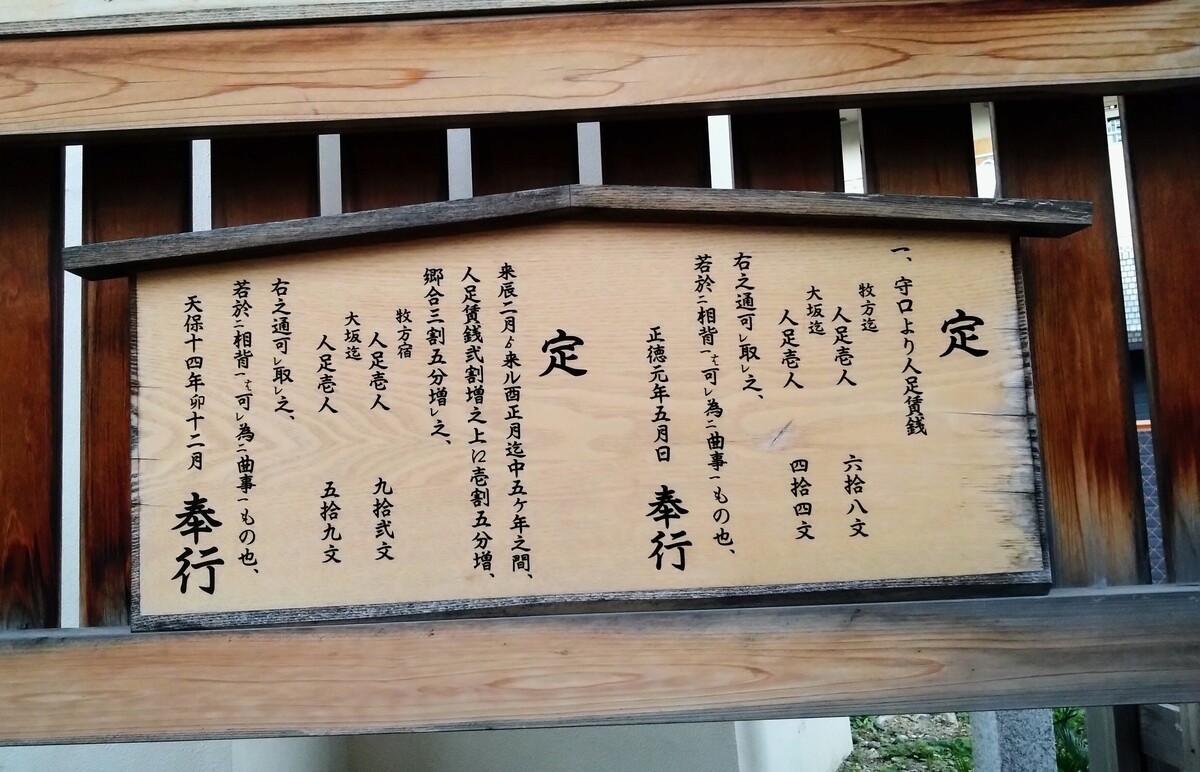 定
一、守口より人足賃銭
牧方迄
人足壱人 六拾八文
大坂迄
人足壱人 四拾四文
右之通可㆑取㆑之、
若於㆓相背㆒ハ可㆑為㆓曲事㆒もの也、
正徳元年五月日 奉行
定
来辰二月ゟ来ル酉正月迄中五ケ年之間、
人足賃銭弐割増之上に壱割五分増、
郷合三割五分増㆑之、
牧方宿
人足壱人 九拾弐文
大坂迄
人足壱人 五拾九文
右之通可㆑取㆑之、
若於㆓相背㆒ハ可㆑為㆓曲事㆒もの也、
天保十四年卯十二月 奉行